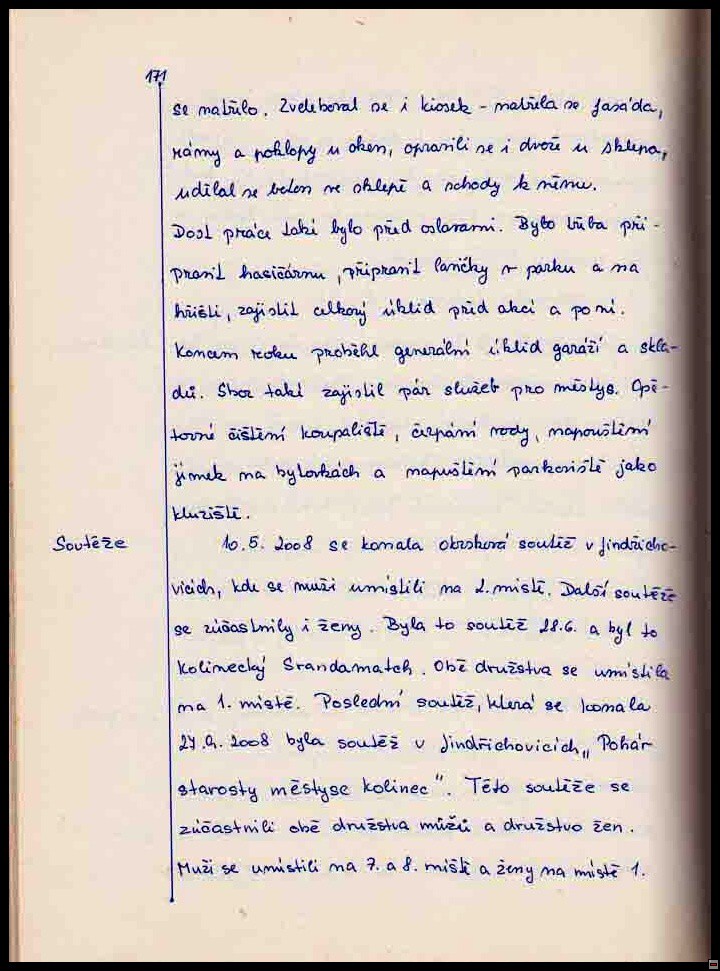 171
se natřelo. Zveleboval se i kiosek - natřela se fasáda,
rámy a poklopy u oken, opravili se i dvoře u sklepa,
udělal se beton ve sklepě a schody k němu.
Dost práce také bylo před oslavami. Bylo třeba při-
pravit hasičárnu, připravit lavičky v parku a na
hřišti, zajistit celkový úklid před akcí a po ní.
Koncem roku proběhl generální úklid garáží a skla-
dů. Sbor také zajistil pár služeb pro městys. Opě-
tovné čištění koupaliště, čerpání vody, napouštění
jímek na bytovkách a napuštění parkoviště jako
kluziště.
Soutěže
10.5. 2008 se konala okrsková soutěž v Jindřicho-
vicích, kde se muži umístili na 2. místě. Další soutěže
se zúčastnily i ženy. Byla to soutěž 28.6. a byl to
Kolinecký Srandamatch. Obě družstva se umístila
na 1. místě. Poslední soutěž, která se konala
27.9. 2008 byla soutěž v Jindřichovicích „Pohár
starosty městyse Kolinec". Této soutěže se
zúčastnili obě družstva mužů a družstvo žen.
Muži se umístili na 7. a 8. místě a ženy na místě 1.